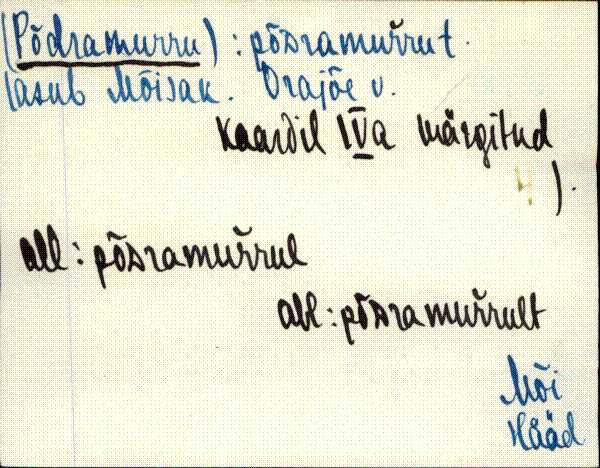 (Põdramurru) : põsramur̆rut.
(asub Mõisak. Orajõe v.
kaardil IVa märgitud
).
all : põsramur̆rul
abl : põsramur̆rult
Mõi
Hääd